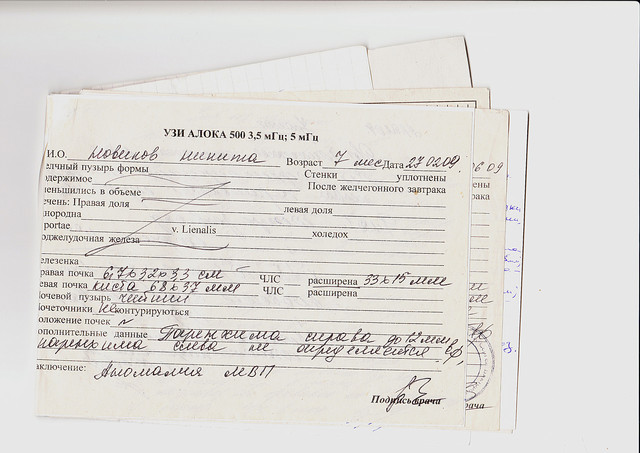 УЗИ АЛОКА 500 3,5 мГц; 5 мГц
И.О. Новиков Никита Возраст 7 мес Дата 27 02 09.
елчный пузырь формы Стенки уплотнены
одержимое После желчегонного завтрака
меньшились в объеме
ечень: Правая доля левая доля
днородна
portae v. Lienalis холедох
оджелудочная железа
елезенка
равая почка 6.7х32х33 см ЧЛС расширена 33х15 мм
евая почка киста 68х37 мм ЧЛС расширена
очевой пузырь чистый
очеточники не контурируются
оложение почек
ополнительные данные Паренхима справа до 12 мм,
паренхима слева не определяется
аключение: Аномалия МВП
Подпись врача
06 09
ены
рака
мм
рача